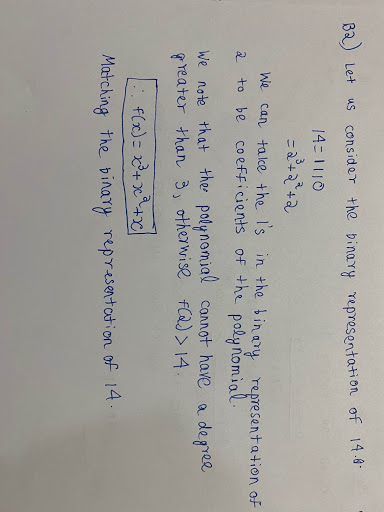 B2) Let us consider the binary representation of 14.
14 = 1110
= 2³+2²+2
We can take the 1's in the binary representation of
2 to be coefficients of the polynomial.
We note that the polynomial cannot have a degree
greater than 3, otherwise f(2) > 14.
∴ f(x) = x³+x²+x
Matching the binary representation of 14.